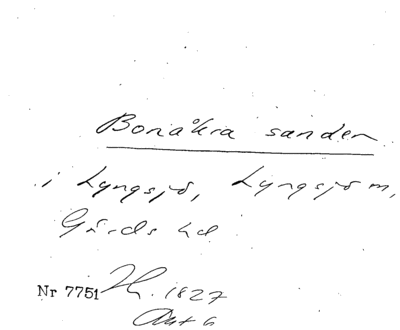 Bonåkra sanden
i Lyngsjö, Lyngsjö m,
Gärds hd
Nr 7751 H. 1827
Akt 6